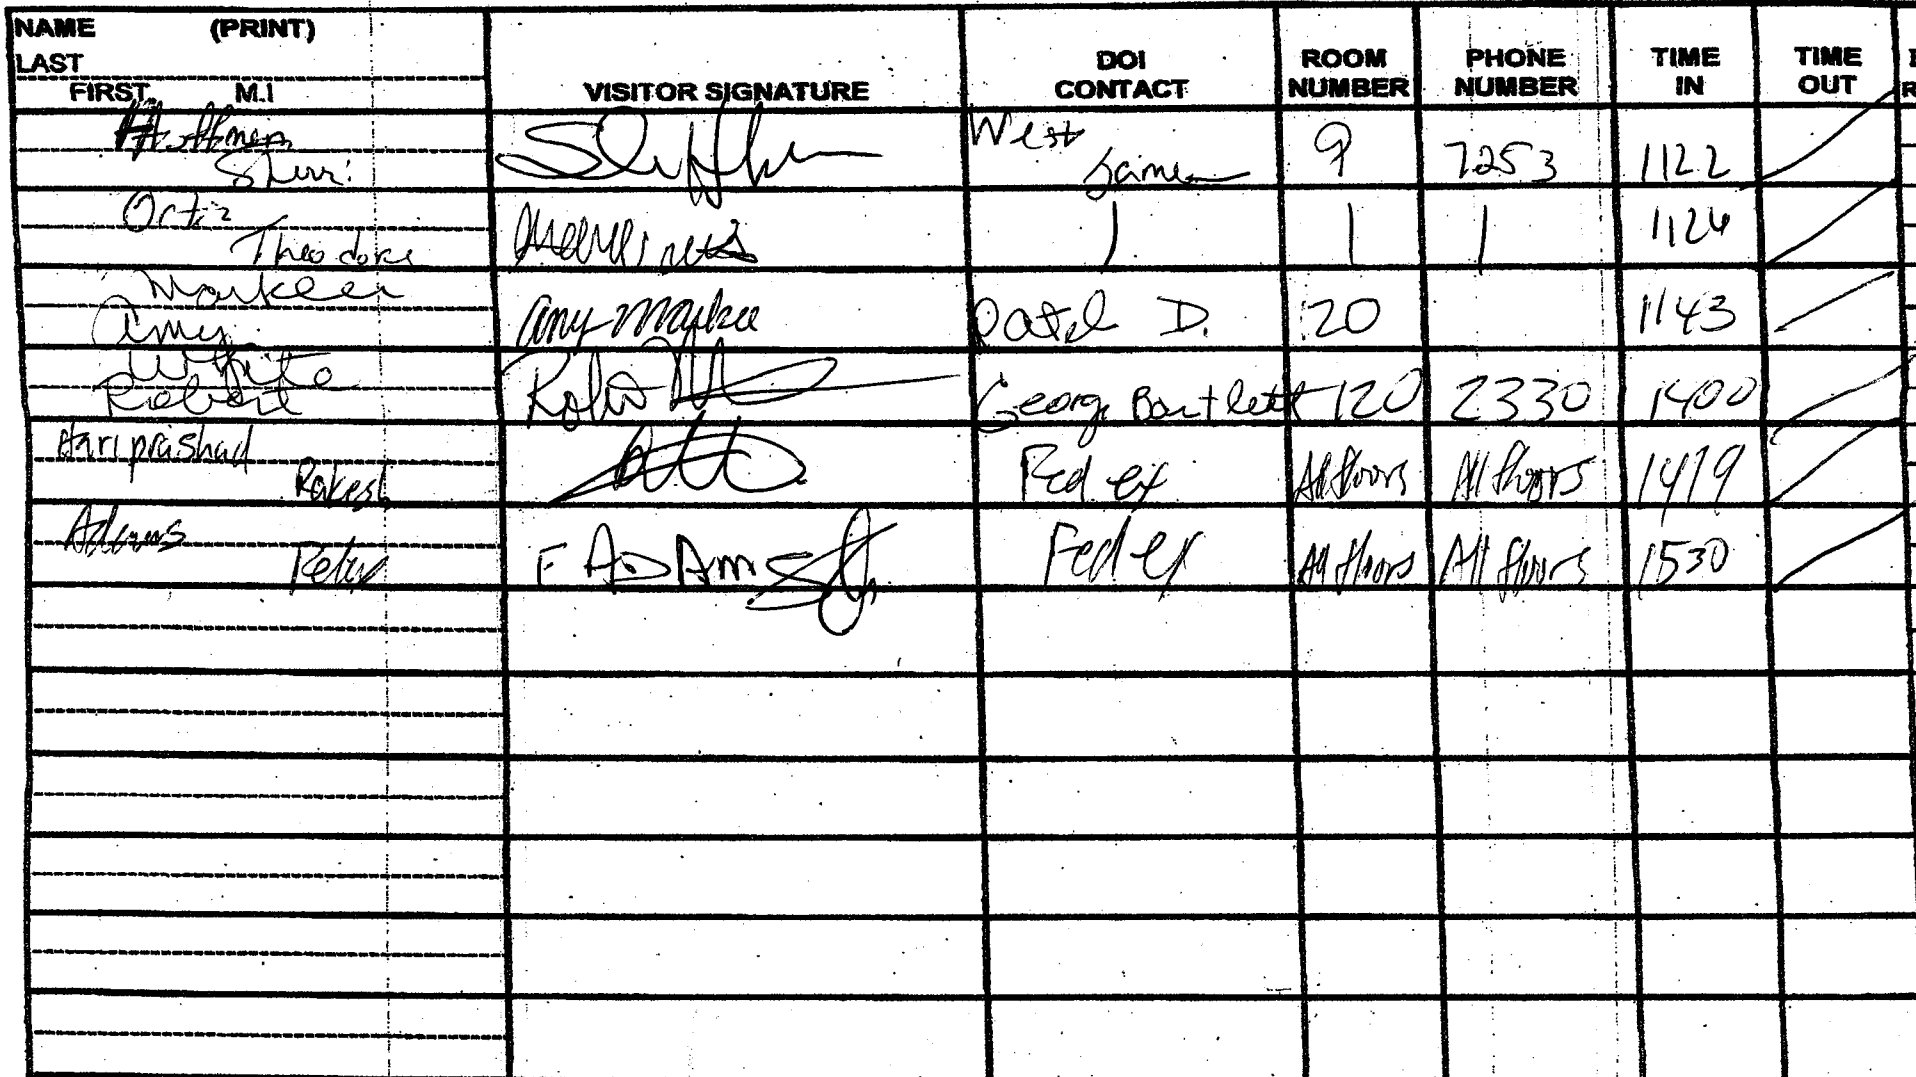 NAME (PRINT)
LAST
FIRST M.I
VISITOR SIGNATURE
DOI CONTACT
ROOM NUMBER
PHONE NUMBER
TIME IN
TIME OUT
Hoffman Sherri West Jaime 9 7253 1122
Ortiz Theodore | | | 1126
Markeer Amy Amy Markee Patel D. 20 1143
White Robert George Bartlett 120 2330 1400
Hariprashad Rakesh Fed ex All floors All floors 1419
Adams Felix F ADAMS Fed ex All floors All floors 1530